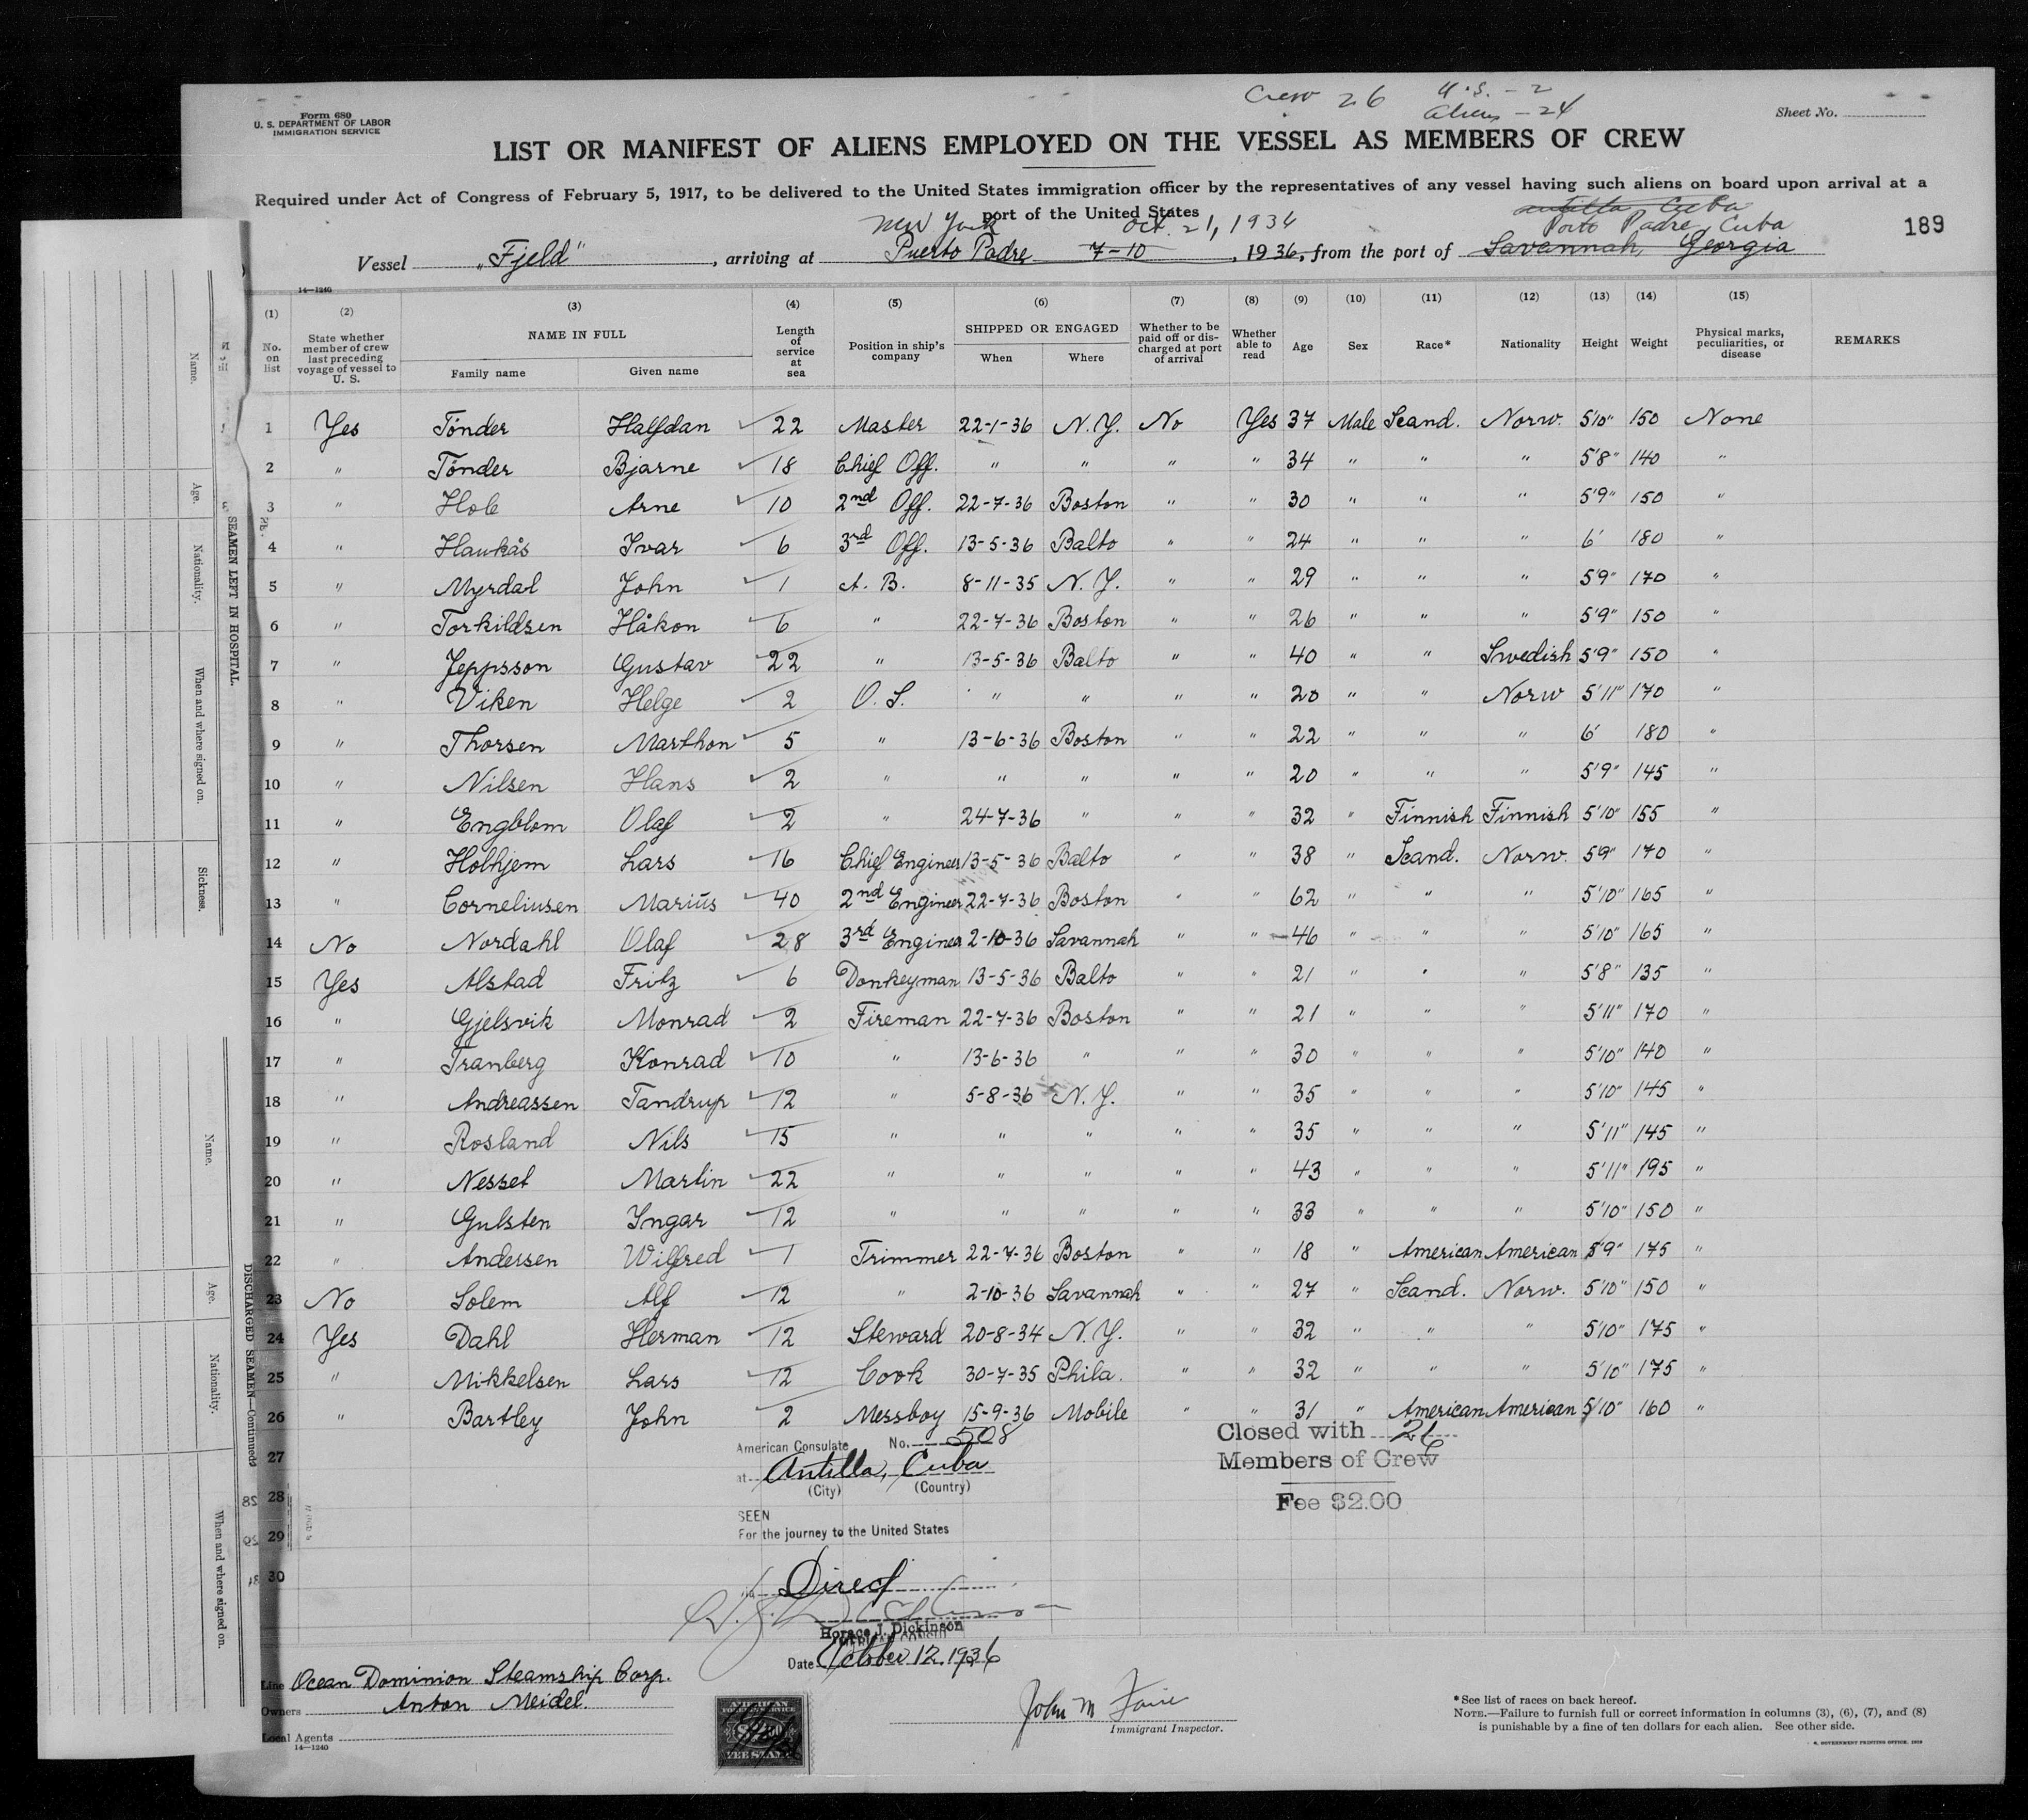 Crew 26 U.S. - 2
Aliens - 24
Form 680
U. S. DEPARTMENT OF LABOR
IMMIGRATION SERVICE
Sheet No.
LIST OR MANIFEST OF ALIENS EMPLOYED ON THE VESSEL AS MEMBERS OF CREW
Required under Act of Congress of February 5, 1917, to be delivered to the United States immigration officer by the representatives of any vessel having such aliens on board upon arrival at a
port of the United States
Antilla Cuba
New York Oct. 21, 1936 Porto Padre, Cuba
189
Vessel "Fjeld", arriving at Puerto Padre 7-10, 1936, from the port of Savannah, Georgia
14—1240
(1) (2) (3) (4) (5) (6) (7) (8) (9) (10) (11) (12) (13) (14) (15)
No. on list State whether member of crew last preceding voyage of vessel to U. S. NAME IN FULL Family name Given name Length of service at sea Position in ship's company SHIPPED OR ENGAGED When Where Whether to be paid off or discharged at port of arrival Whether able to read Age Sex Race* Nationality Height Weight Physical marks, peculiarities, or disease REMARKS
1 Yes Tönder Halfdan 22 Master 22-1-36 N.Y. No Yes 37 Male Scand. Norw. 5'10" 150 None
2 " Tönder Bjarne 18 Chief Off. " " " " 34 " " " 5'8" 140 "
3 " Hole Arne 10 2nd Off. 22-7-36 Boston " " 30 " " " 5'9" 150 "
4 " Haukås Ivar 6 3rd Off. 13-5-36 Balto " " 24 " " " 6' 180 "
5 " Myrdal John 1 A. B. 8-11-35 N.Y. " " 29 " " " 5'9" 170 "
6 " Torkildsen Håkon 6 " 22-7-36 Boston " " 26 " " " 5'9" 150 "
7 " Jeppsson Gustav 22 " 13-5-36 Balto " " 40 " " Swedish 5'9" 150 "
8 " Viken Helge 2 O. S. " " " " 20 " " Norw 5'11" 170 "
9 " Thorsen Marthon 5 " 13-6-36 Boston " " 22 " " " 6' 180 "
10 " Nilsen Hans 2 " " " " " 20 " " " 5'9" 145 "
11 " Engblom Olaf 2 " 24-7-36 " " " 32 " Finnish Finnish 5'10" 155 "
12 " Holhjem Lars 16 Chief Engineer 13-5-36 Balto " " 38 " Scand. Norw. 5'9" 170 "
13 " Corneliusen Marius 40 2nd Engineer 22-7-36 Boston " " 62 " " " 5'10" 165 "
14 No Nordahl Olaf 28 3rd Engineer 2-10-36 Savannah " " 46 " " " 5'10" 165 "
15 Yes Alstad Fritz 6 Donkeyman 13-5-36 Balto " " 21 " " " 5'8" 135 "
16 " Gjelsvik Monrad 2 Fireman 22-7-36 Boston " " 21 " " " 5'11" 170 "
17 " Tranberg Konrad 10 " 13-6-36 " " " 30 " " " 5'10" 140 "
18 " Andreassen Tandrup 12 " 5-8-36 N.Y. " " 35 " " " 5'10" 145 "
19 " Rosland Nils 15 " " " " " 35 " " " 5'11" 145 "
20 " Nesset Martin 22 " " " " " 43 " " " 5'11" 195 "
21 " Gulsten Ingar 12 " " " " " 33 " " " 5'10" 150 "
22 " Andersen Wilfred 1 Trimmer 22-7-36 Boston " " 18 " American American 5'9" 175 "
23 No Solem Alf 12 " 2-10-36 Savannah " " 27 " Scand. Norw. 5'10" 150 "
24 Yes Dahl Herman 12 Steward 20-8-34 N.Y. " " 32 " " " 5'10" 175 "
25 " Mikkelsen Lars 12 Cook 30-7-35 Phila. " " 32 " " " 5'10" 175 "
26 " Bartley John 2 Messboy 15-9-36 Mobile " " 31 " American American 5'10" 160 "
27
28
29
30
American Consulate No. 508
at Antilla, Cuba
(City) (Country)
SEEN
For the journey to the United States
via Direct
Horace J. Dickinson
Date October 12. 1936
Closed with 26
Members of Crew
Fee $2.00
Line Ocean Dominion Steamship Corp.
Owners Anton Meidel.
Local Agents
14—1240
AMERICAN
FEE STAMP
John M
Immigrant Inspector.
*See list of races on back hereof.
NOTE.—Failure to furnish full or correct information in columns (3), (6), (7), and (8)
is punishable by a fine of ten dollars for each alien. See other side.
SEAMEN LEFT IN HOSPITAL.
Name.
Age.
Nationality.
When and where signed on.
Sickness.
DISCHARGED SEAMEN—Continued
Name.
Age.
Nationality.
When and where signed on.